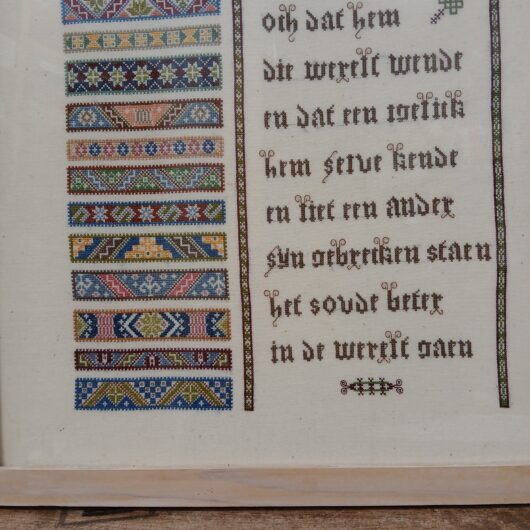 och dat hem
die werelt wende
en dat een igelick
hem selve kende
en liet een ander
syn gebrecken staen
het soude beter
in de werelt gaen